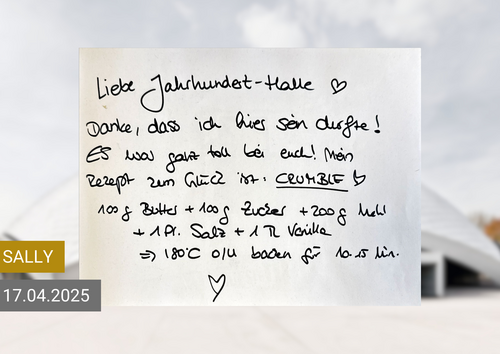 Liebe Jahrhundert-Halle ♡
Danke, dass ich hier sein durfte!
Es war ganz toll bei euch! Mein
Rezept zum Glück ist: CRUMBLE ♡
100g Butter + 100g Zucker + 200g Mehl
+ 1 Pr. Salz + 1 TL Vanille
⇒ 180°C O/U backen für 10-15 Min.
♡
SALLY
17.04.2025